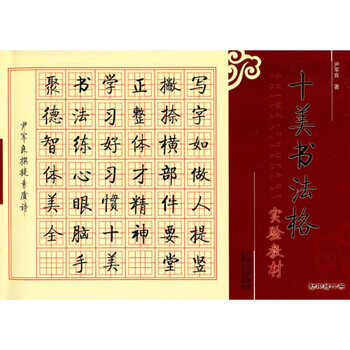 尹军良 著
十美书法格
实验教材
写字如做人提竖
撇捺横部件要堂
正整体才精神
学习好习惯十美
书法练心眼脑手
聚德智体美全
尹军良撰